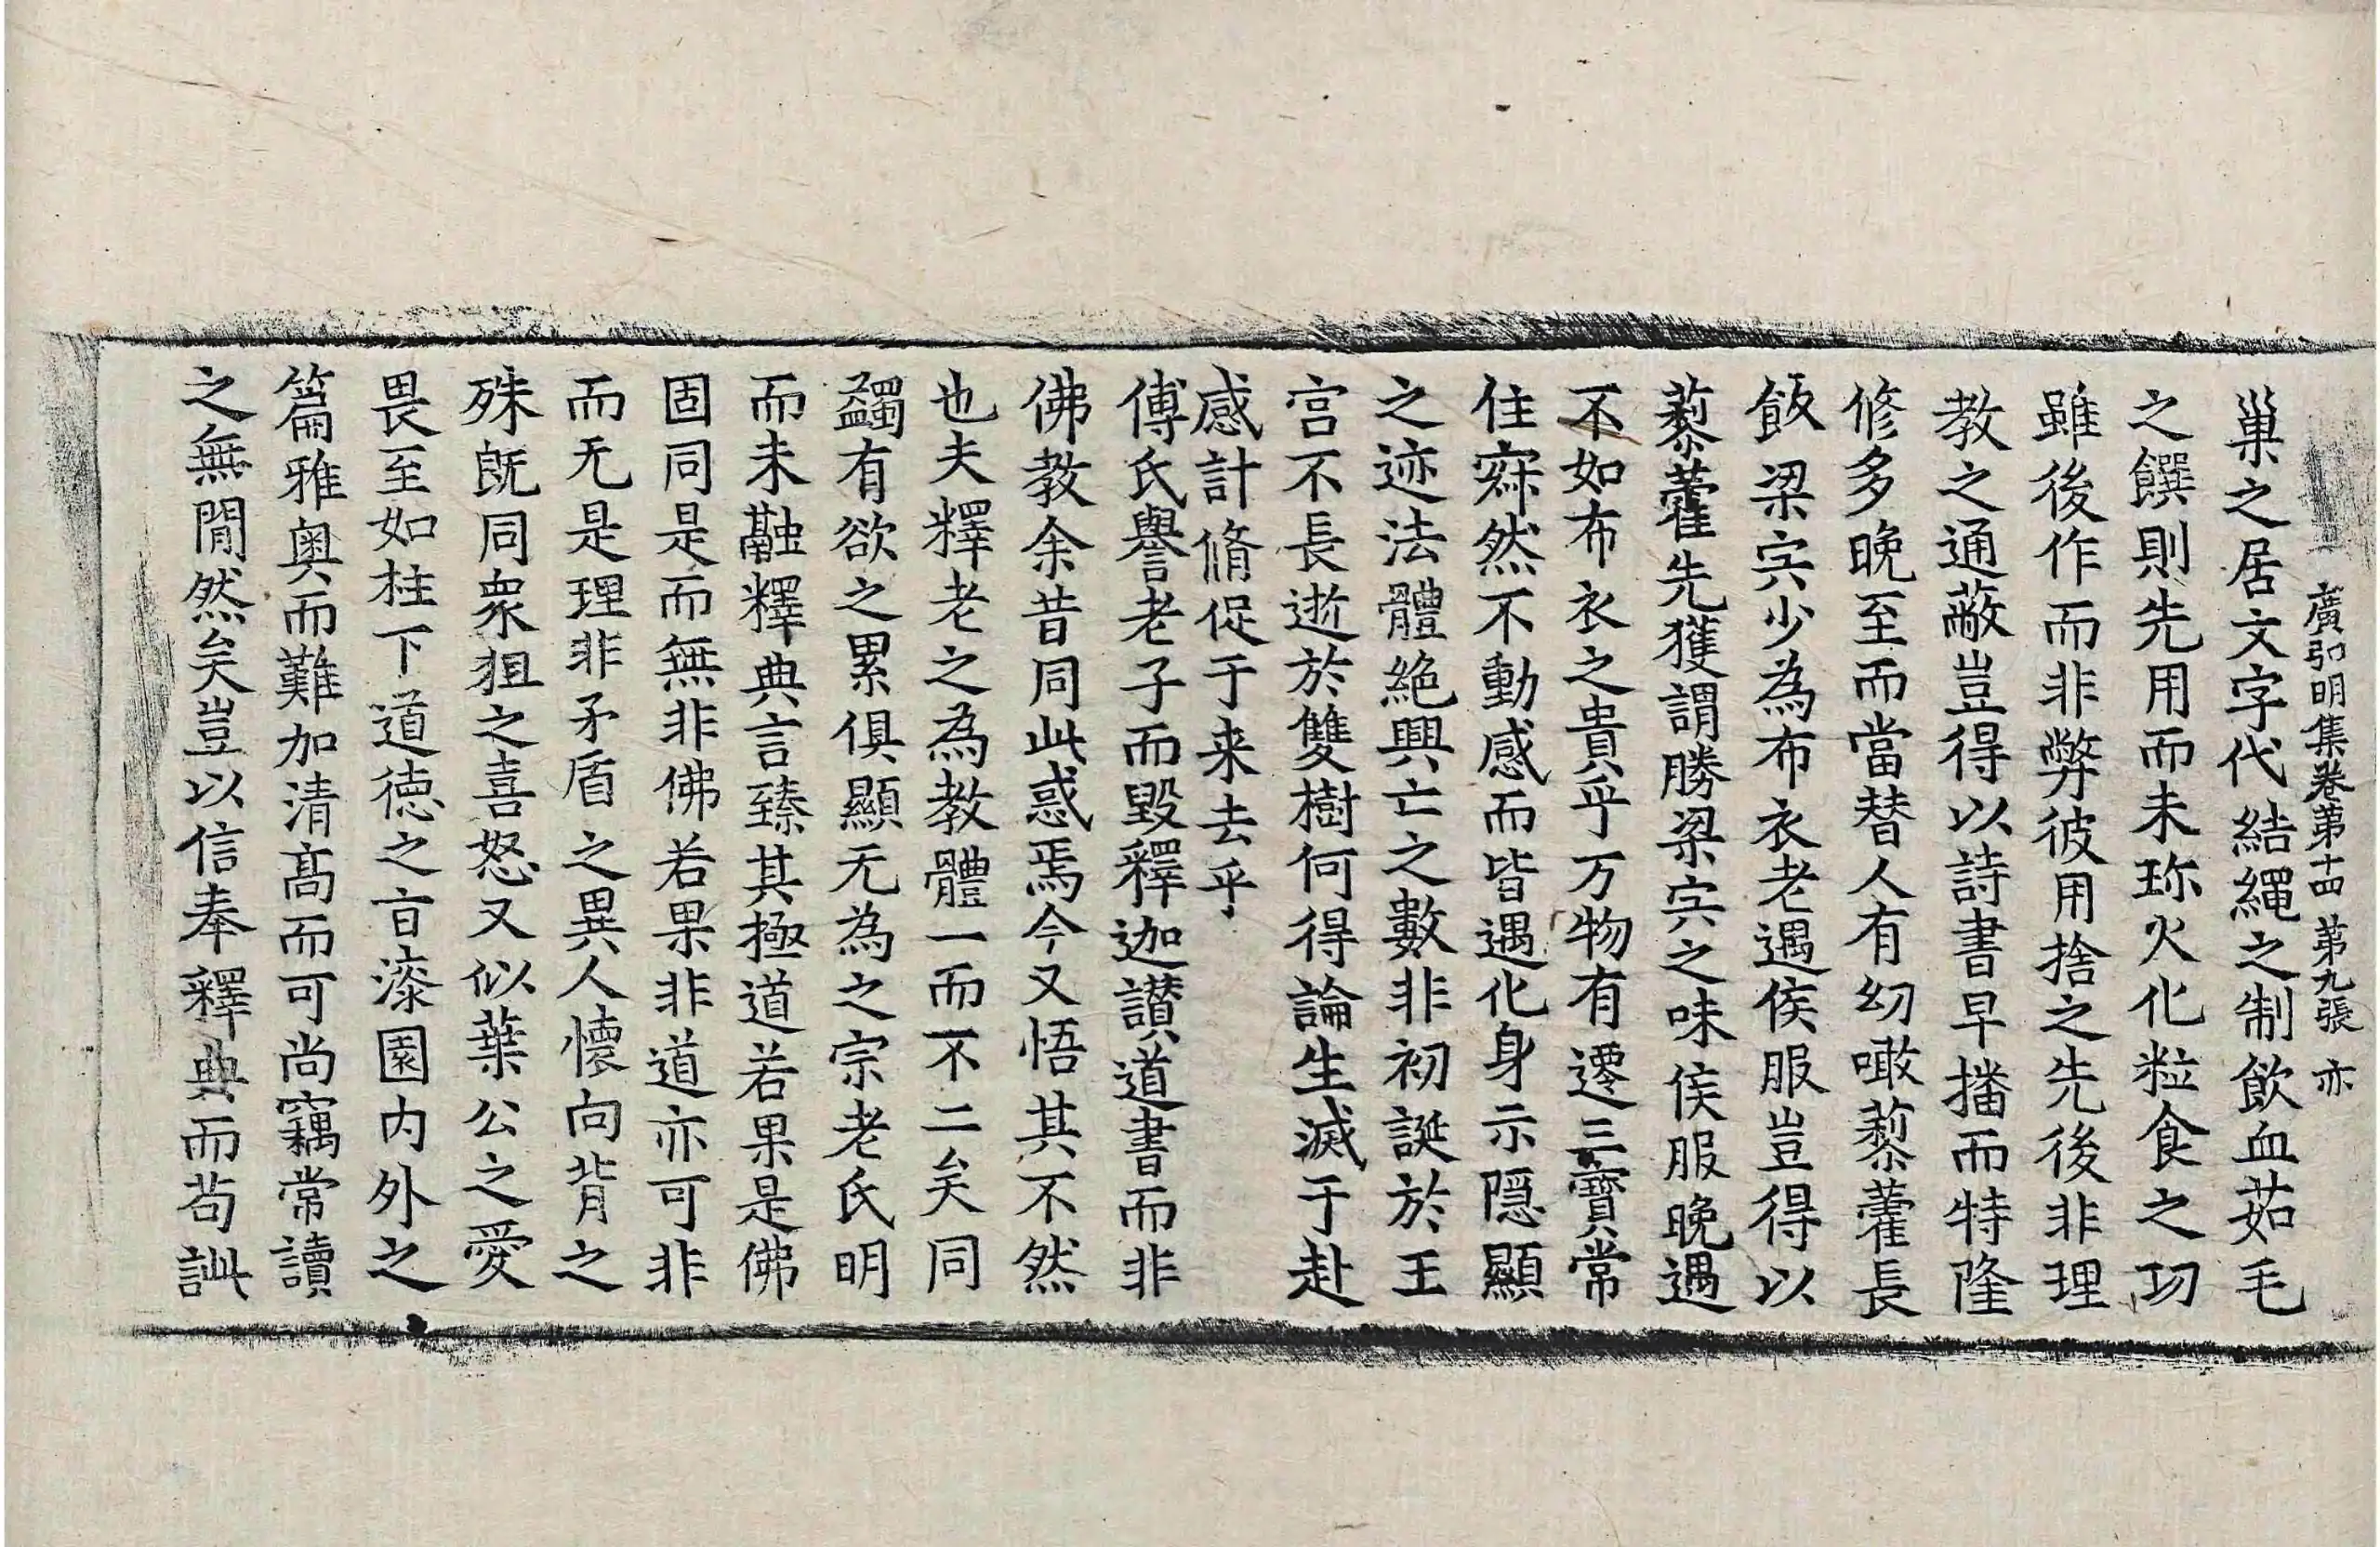 廣弘明集卷第十四 第九張 亦
巢之居文字代結繩之制飲血茹毛
之饌則先用而未珎火化粒食之功
雖後作而非弊彼用捨之先後非理
教之通蔽豈得以詩書早播而特隆
修多晚至而當替人有幼噉藜藿長
飯梁宍少為布衣老遇侯服豈得以
藜藿先獲謂勝梁宍之味侯服晚遇
不如布衣之貴乎万物有遷三寶常
住寂然不動感而皆遇化身示隱顯
之迹法體絶興亡之數非初誕於王
宮不長逝於雙樹何得論生滅于赴
感計脩促于来去乎
傅氏譽老子而毀釋迦讃道書而非
佛教余昔同此惑焉今又悟其不然
也夫釋老之為教體一而不二矣同
蠲有欲之累俱顯无為之宗老氏明
而未融釋典言臻其極道若果是佛
固同是而無非佛若果非道亦可非
而无是理非矛盾之異人懷向背之
殊旣同衆狙之喜怒又似葉公之愛
畏至如柱下道德之旨漆園内外之
篇雅奥而難加清髙而可尚竊常讀
之無閒然矣豈以信奉釋典而苟訿